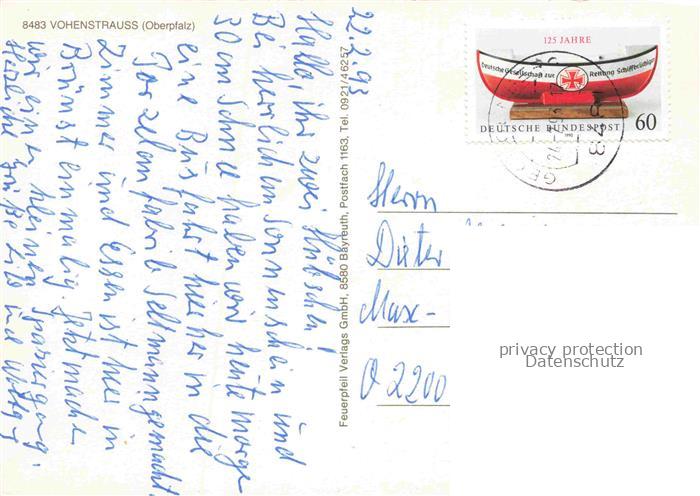 8483 VOHENSTRAUSS (Oberpfalz)
22.2.93
Hallo, ihr zwei Hübschen!
Bei herrlichem Sonnenschein und
30 cm Schnee haben wir heute morge
eine Busfahrt hierher in die
Porzelanfabrik Seltmann gemacht.
Zimmer und Essen ist hier in
Brünst einmalig. Jetzt machen
wir einen kleinen Spaziergang.
Herzliche Grüße und
Feuerpfeil Verlags GmbH, 8580 Bayreuth, Postfach 1163, Tel. 0921/46257
125 JAHRE
Deutsche Gesellschaft zur Rettung Schiffbrüchiger
DEUTSCHE BUNDESPOST 60
1990
Herrn
Dieter
Max-
O 2200
privacy protection
Datenschutz